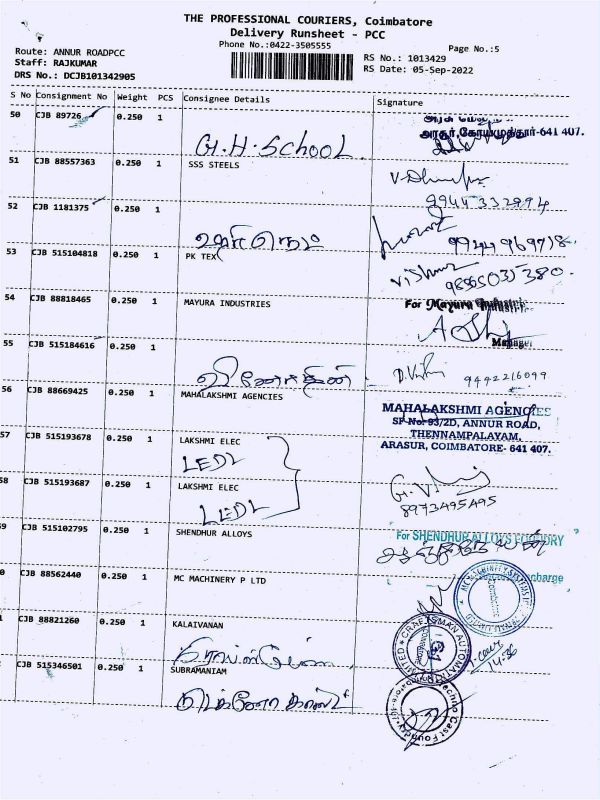 THE PROFESSIONAL COURIERS, Coimbatore
Delivery Runsheet - PCC
Phone No.:0422-3505555
Page No.:5
Route: ANNUR ROADPCC
Staff: RAJKUMAR
DRS No.: DCJB101342905
RS No.: 1013429
RS Date: 05-Sep-2022
S No Consignment No Weight PCS Consignee Details Signature
50 CJB 89726 0.250 1
G.H.School
அரசூர், கோயமுத்தூர்-641 407.
51 CJB 88557363 0.250 1 SSS STEELS
9944332994
52 CJB 1181375 0.250 1
9944969718
53 CJB 515104818 0.250 1 PK TEX
Vishnu
54 CJB 88818465 0.250 1 MAYURA INDUSTRIES
For Mayura Industries
Manager
55 CJB 515184616 0.250 1
9442216099
56 CJB 88669425 0.250 1 MAHALAKSHMI AGENCIES
MAHALAKSHMI AGENCIES
SF No. 93/2D, ANNUR ROAD,
THENNAMPALAYAM,
ARASUR, COIMBATORE- 641 407.
57 CJB 515193678 0.250 1 LAKSHMI ELEC
LEDL
58 CJB 515193687 0.250 1 LAKSHMI ELEC
LEDL
8973495495
9 CJB 515102795 0.250 1 SHENDHUR ALLOYS
For SHENDHUR ALLOYS FOUNDRY
0 CJB 88562440 0.250 1 MC MACHINERY P LTD
charge
CJB 88821260 0.250 1 KALAIVANAN
CRAFTSMAN AUTOMATION LIMITED
CJB 515346501 0.250 1 SUBRAMANIAM